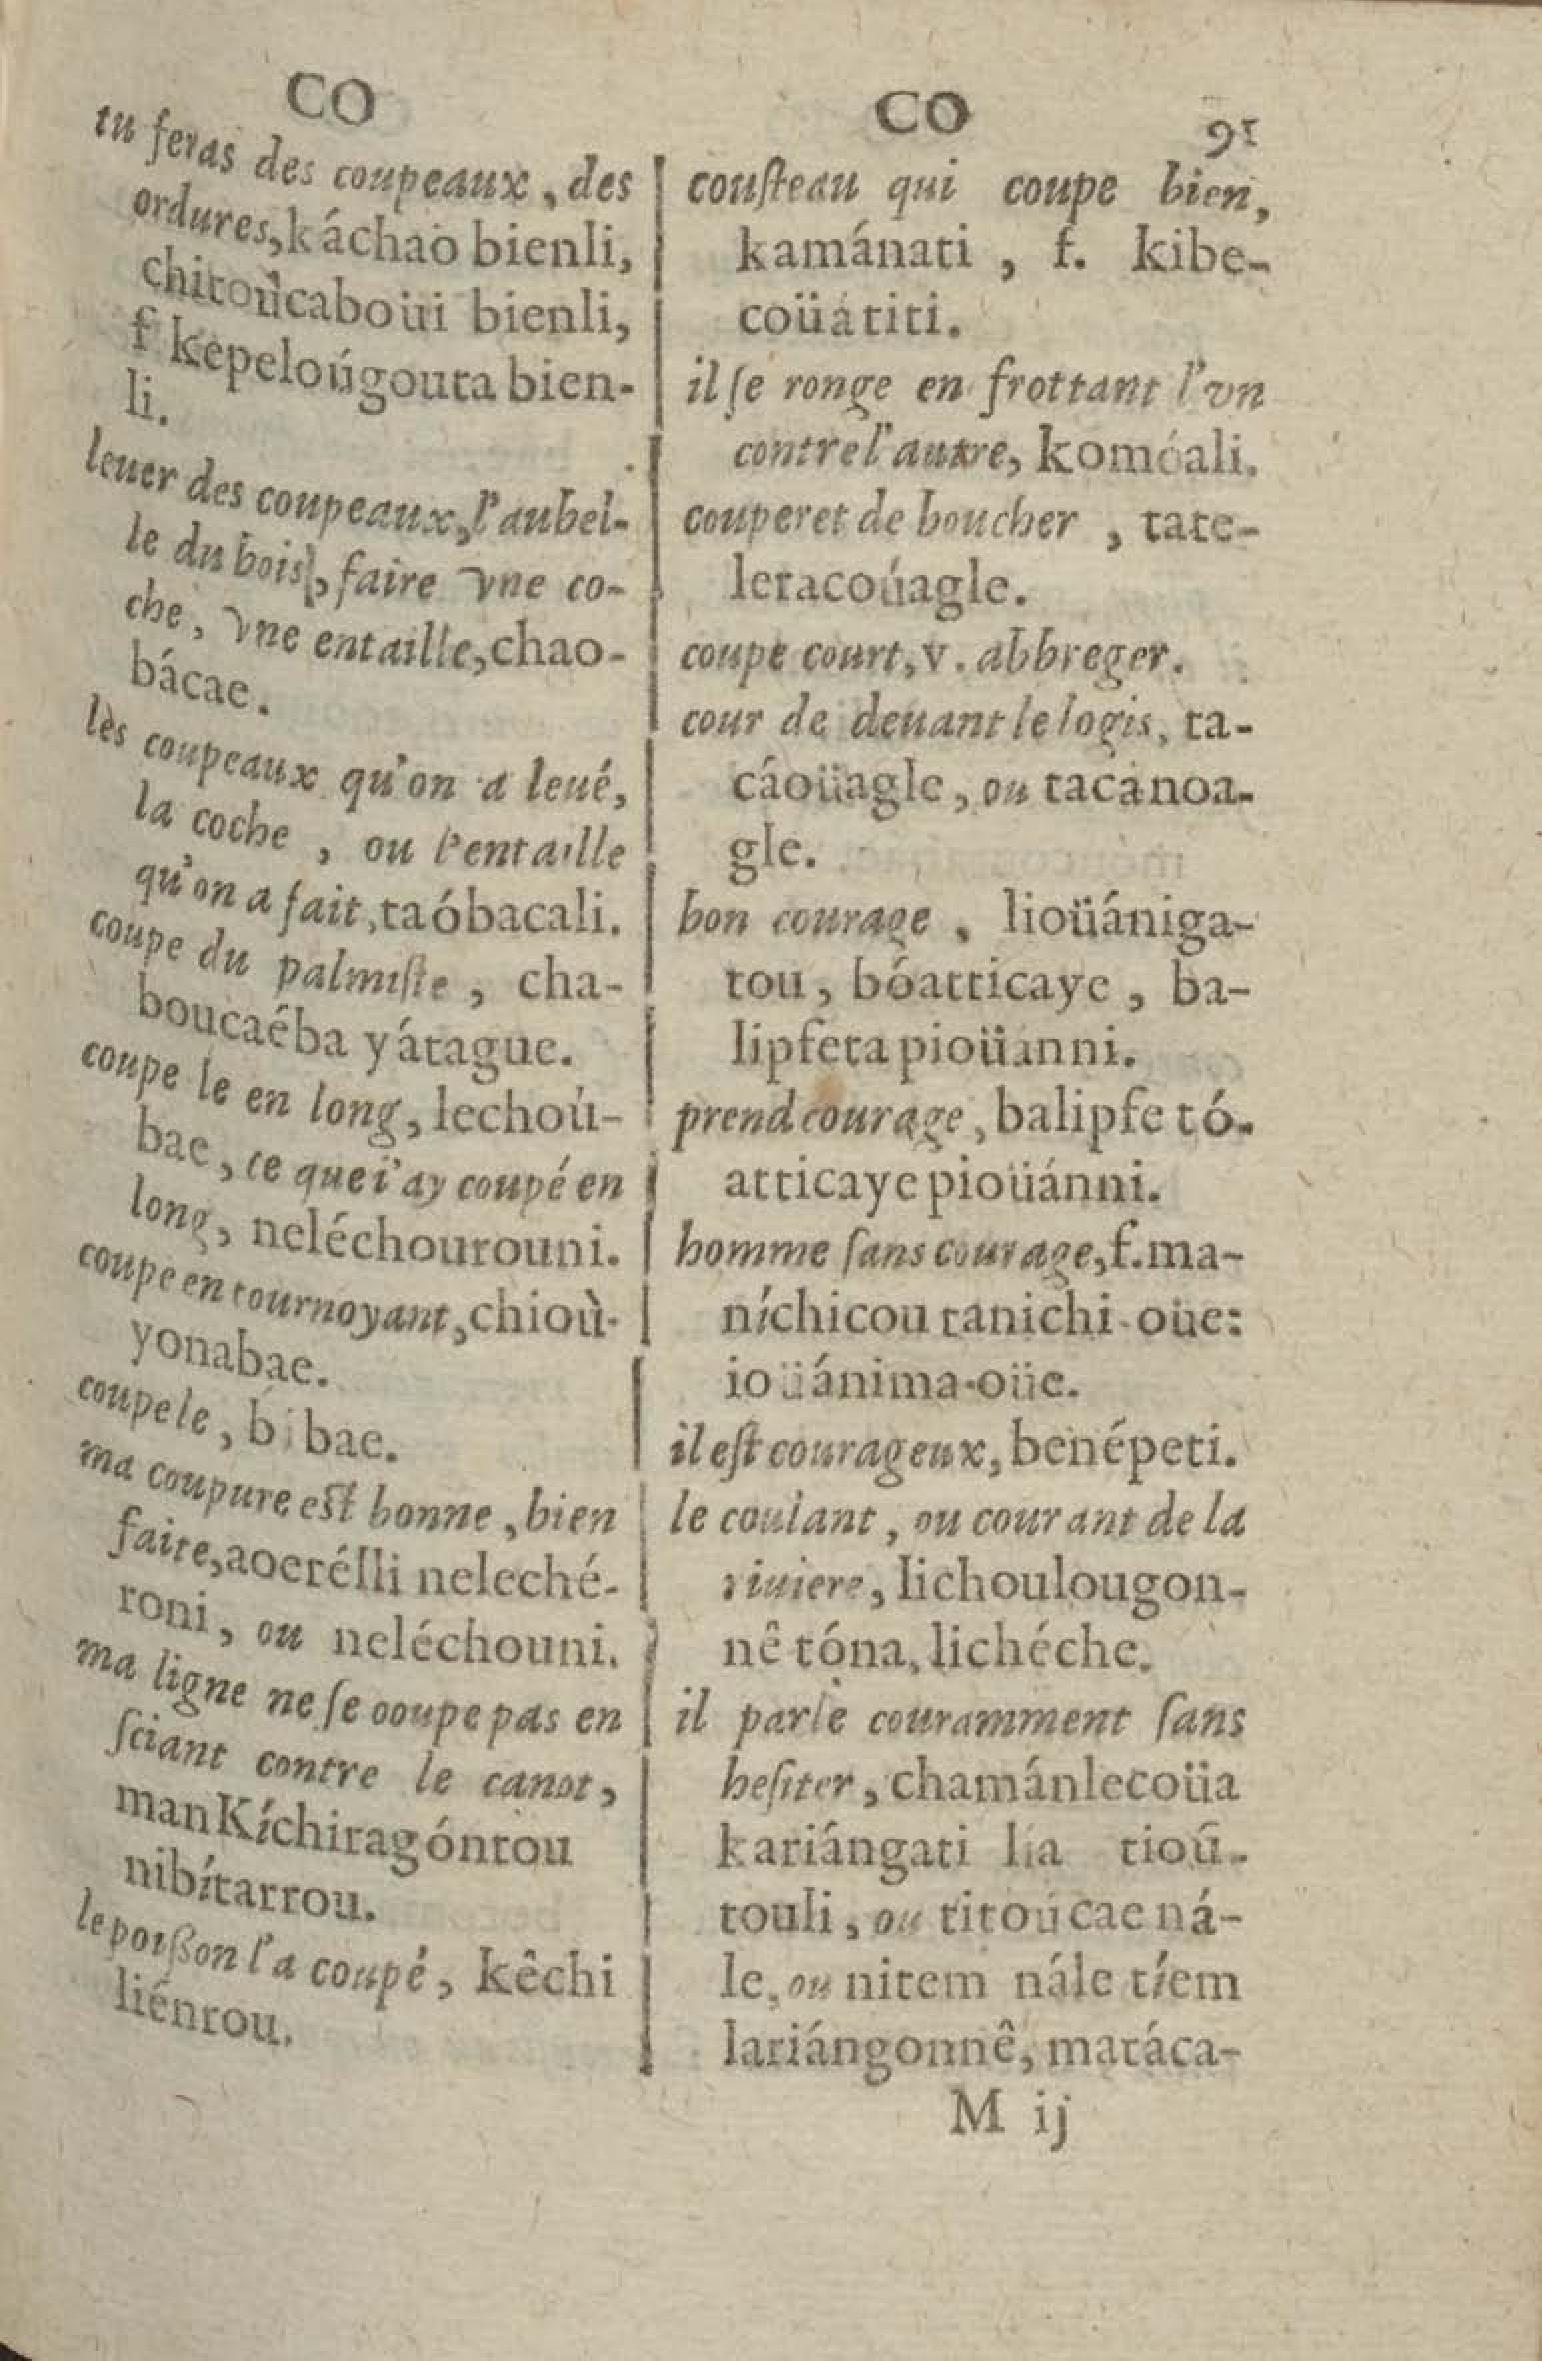 CO
tu feras des coupeaux, des
ordures, káchao bienli,
chitoûcaboüi bienli,
f kepeloúgouta bien-
li.
leuer des coupeaux, l'aubel-
le du bois, faire vne co-
che, vne entaille, chao-
bácae.
lès coupeaux qu'on a leué,
la coche, ou l'entaille
qu'on a fait, taóbacali.
coupe du palmiſte, cha-
boucaéba yátague.
coupe le en long, lechoù-
bae, ce que i'ay coupé en
long, neléchourouni.
coupe en tournoyant, chioù-
yonabae.
coupe le, bibae.
ma coupure eſt bonne, bien
faite, aoerélli neleché-
roni, ou neléchouni.
ma ligne ne ſe ooupe pas en
ſciant contre le canot,
manKíchiragóntou
nibítarrou.
le poiſſon l'a coupé, kêchi
liéntou.
CO 91
couſteau qui coupe bien,
kamánati, f. kibe-
coüátiti.
il ſe ronge en frottant l'vn
contre l'autre, komóali.
couperet de boucher, tate-
letacoúagle.
coupe court, v. abbreger.
cour de deuant le logis, ta-
cáoüagle, ou tacánoa-
gle.
bon courage, lioüániga-
tou, bóatticaye, ba-
lipfeta pioüánni.
prend courage, balipfe tó-
atticaye pioüánni.
homme ſans courage, f. ma-
níchicou tanichi-oüe:
ioüánima-oüe.
il eſt courageux, benépeti.
le coulant, ou courant de la
riuiere, lichoulougon-
nê tóna, lichéche.
il parle couramment ſans
heſiter, chamánlecoüa
kariángati lia tioû-
touli, ou titoúcae ná-
le, ou nitem nále tíem
lariángonnê, matáca-
M ij